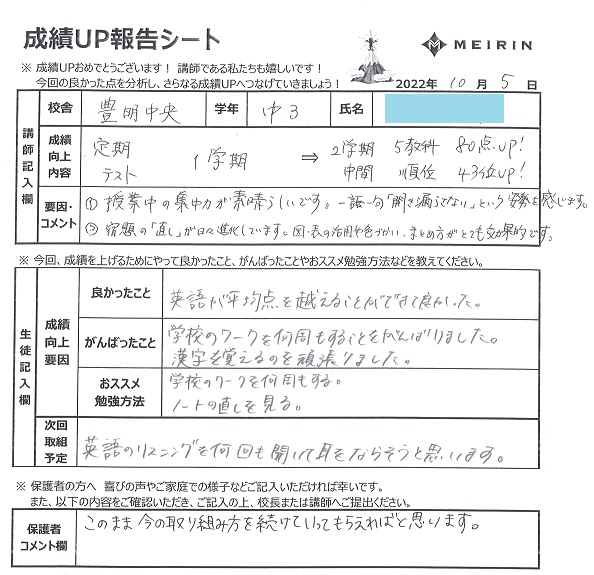 成績UP報告シート
MEIRIN
※ 成績UPおめでとうございます！ 講師である私たちも嬉しいです！
今回の良かった点を分析し、さらなる成績UPへつなげていきましょう！
2022年 10 月 5 日
講師記入欄
校舎 豊明中央 学年 中3 氏名
成績向上内容
定期テスト 1学期 ⇒ 2学期中間 5教科 80点UP! 順位 43位UP!
要因・コメント
① 授業中の集中力が素晴らしいです。一語一句「聞き漏らさない」という姿勢を感じます。
② 宿題の「直し」が日々進化しています。図・表の活用や色づかい、まとめ方がとても効果的です。
※ 今回、成績を上げるためにやって良かったこと、がんばったことやおススメ勉強方法などを教えてください。
生徒記入欄
成績向上要因
良かったこと 英語が平均点を越えることができて良かった。
がんばったこと 学校のワークを何周もすることをがんばりました。
漢字を覚えるのを頑張りました。
おススメ勉強方法 学校のワークを何周もする。
ノートの直しを見る。
次回取組予定 英語のリスニングを何回も聞いて耳をならそうと思います。
※ 保護者の方へ 喜びの声やご家庭での様子などご記入いただければ幸いです。
また、以下の内容をご確認いただき、ご記入の上、校長または講師へご提出ください。
保護者コメント欄 このまま今の取り組み方を続けていってもらえればと思います。